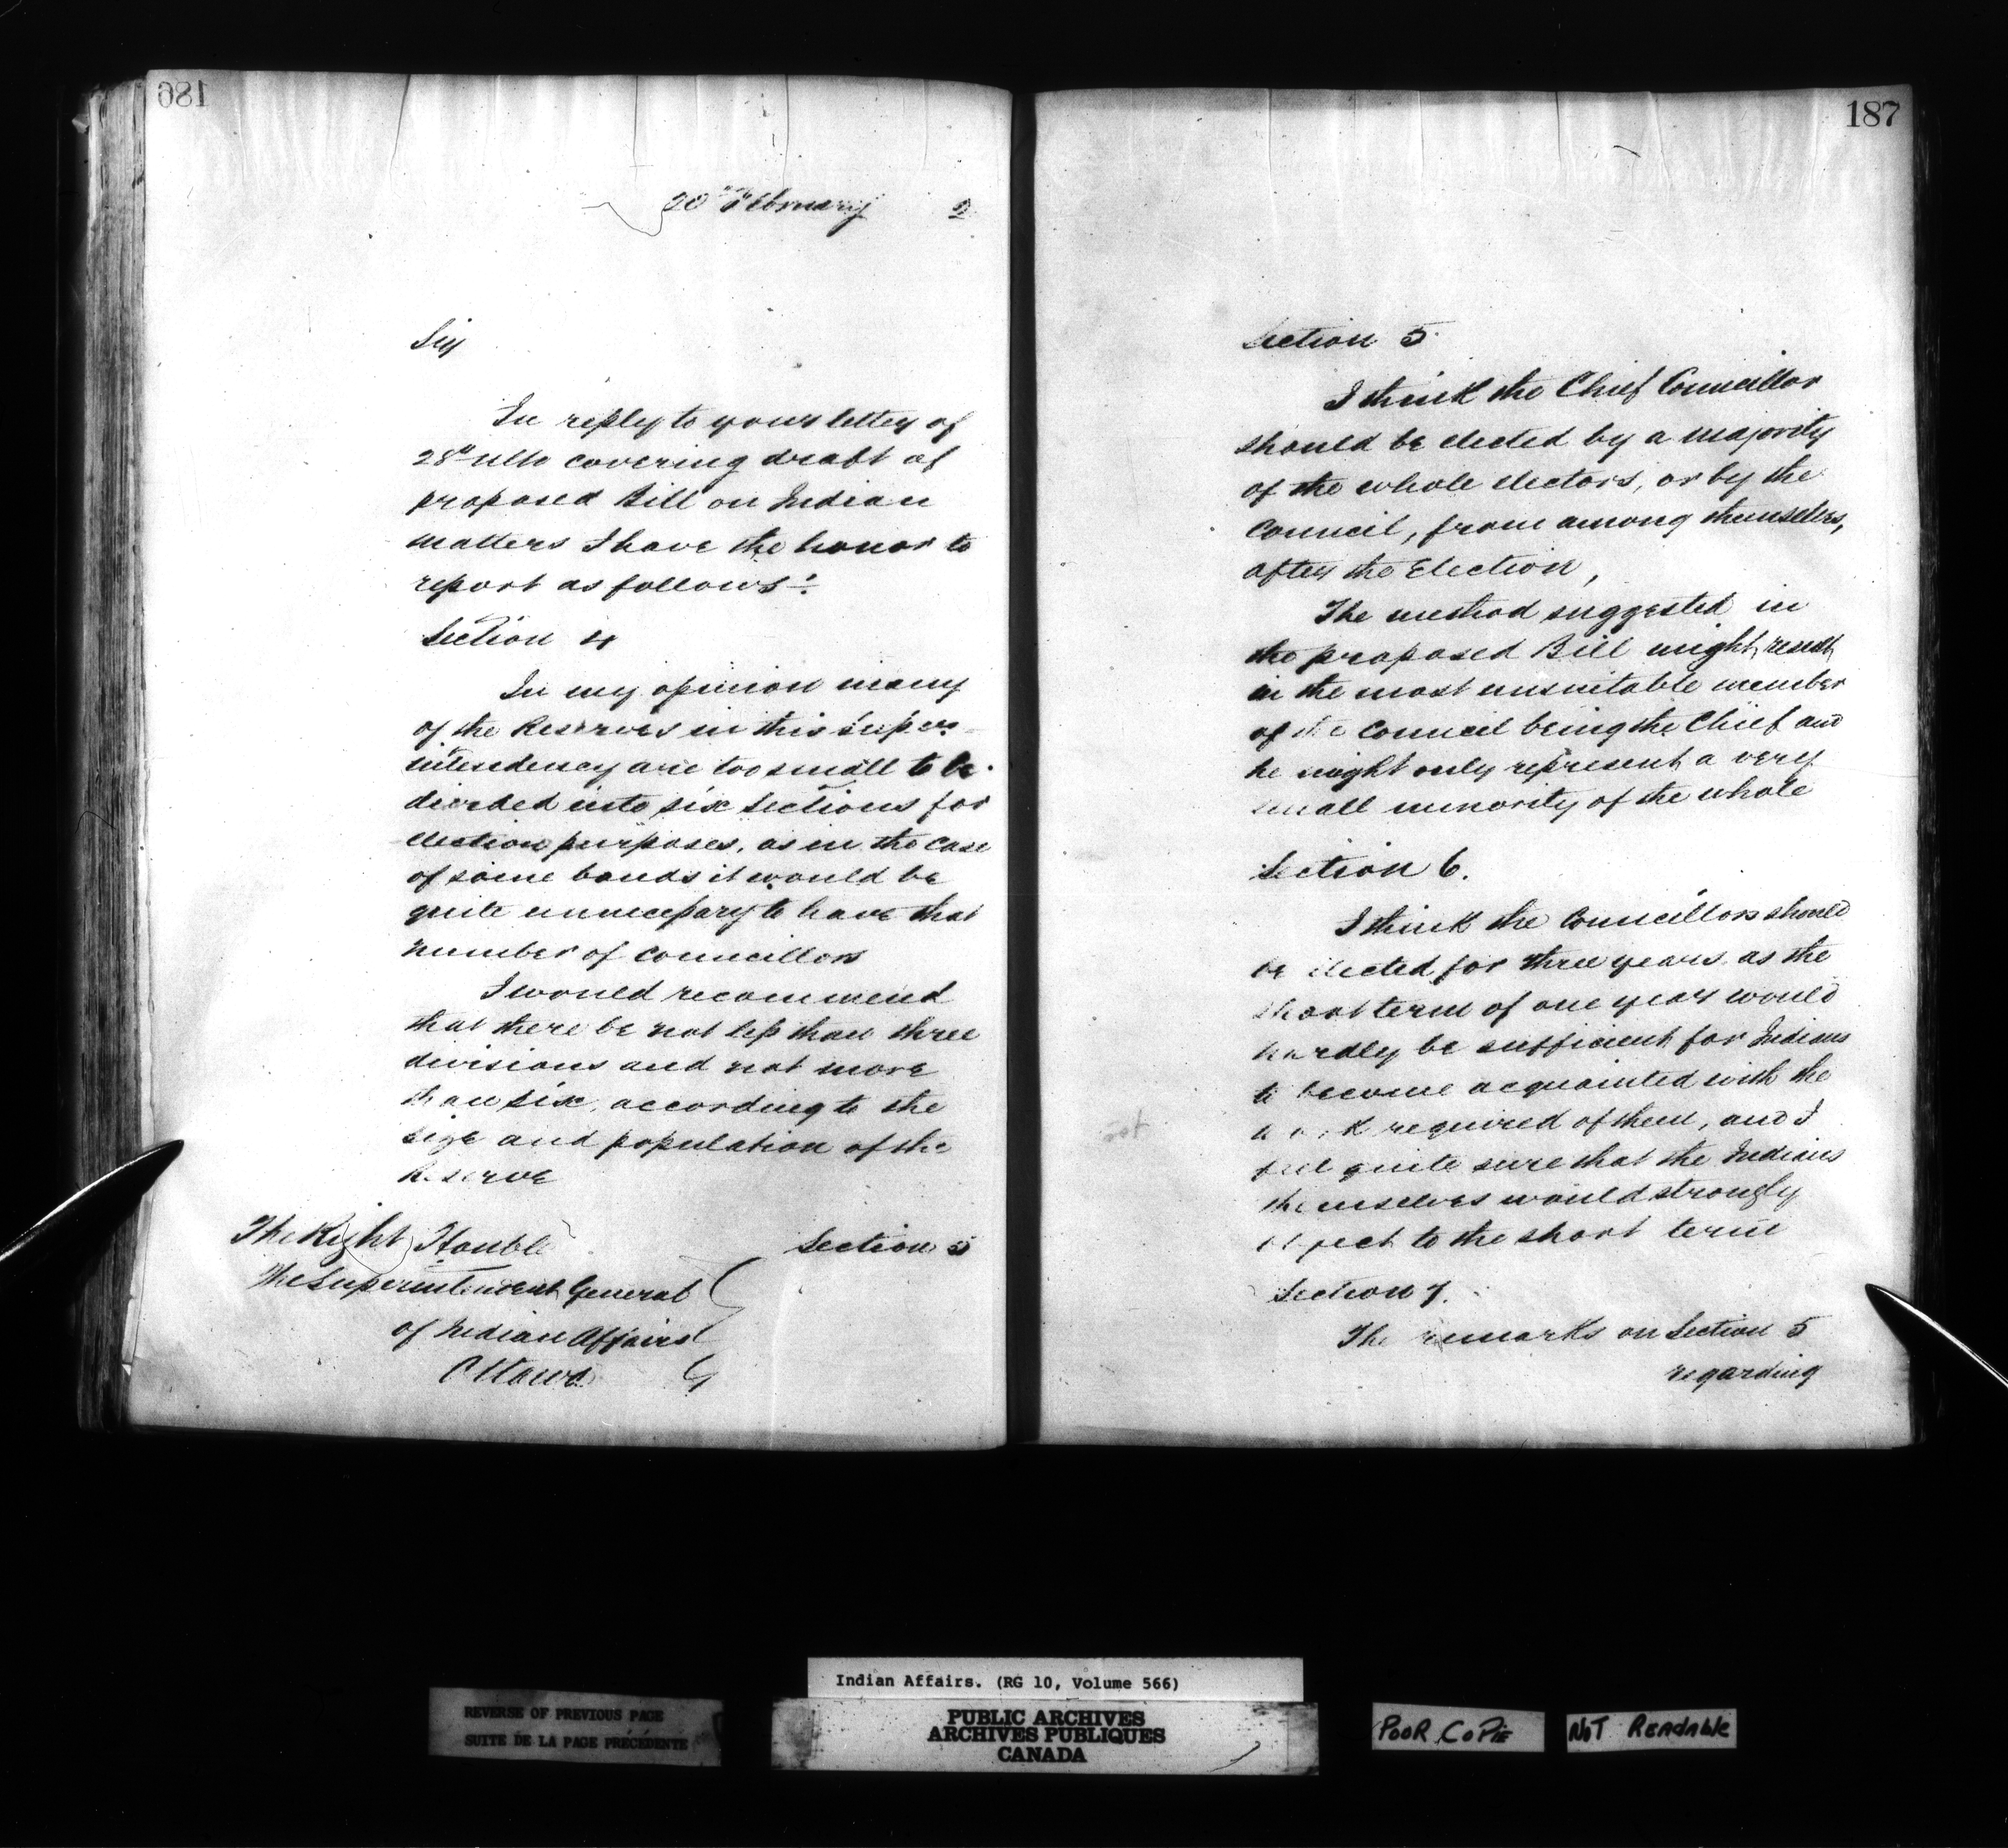 186
20th February 2
Sir
In reply to your letter of
28th ulto covering draft of
proposed Bill on Indian
matters I have the honor to
report as follows:
Section 4
In my opinion many
of the Reserves in this Super-
intendency are too small to be
divided into six Sections for
election purposes, as in the case
of some bands it would be
quite unnecessary to have that
number of Councillors
I would recommend
that there be not less than three
divisions and not more
than six, according to the
size and population of the
Reserve
The Right Honble
The Superintendent General
of Indian Affairs
Ottawa
Section 5
187
Section 5
I think the Chief Councillor
should be elected by a majority
of the whole electors, or by the
Council, from among themselves,
after the Election,
The method suggested in
the proposed Bill might result
in the most unsuitable member
of the Council being the Chief and
he might only represent a very
small minority of the whole
Section 6.
I think the Councillors should
be elected for three years as the
short term of one year would
hardly be sufficient for Indians
to become acquainted with the
work required of them, and I
feel quite sure that the Indians
themselves would strongly
object to the short term
Section 7.
The remarks on Section 5
regarding
Indian Affairs. (RG 10, Volume 566)
REVERSE OF PREVIOUS PAGE
SUITE DE LA PAGE PRÉCÉDENTE
PUBLIC ARCHIVES
ARCHIVES PUBLIQUES
CANADA
POOR COPIE
NOT READABLE